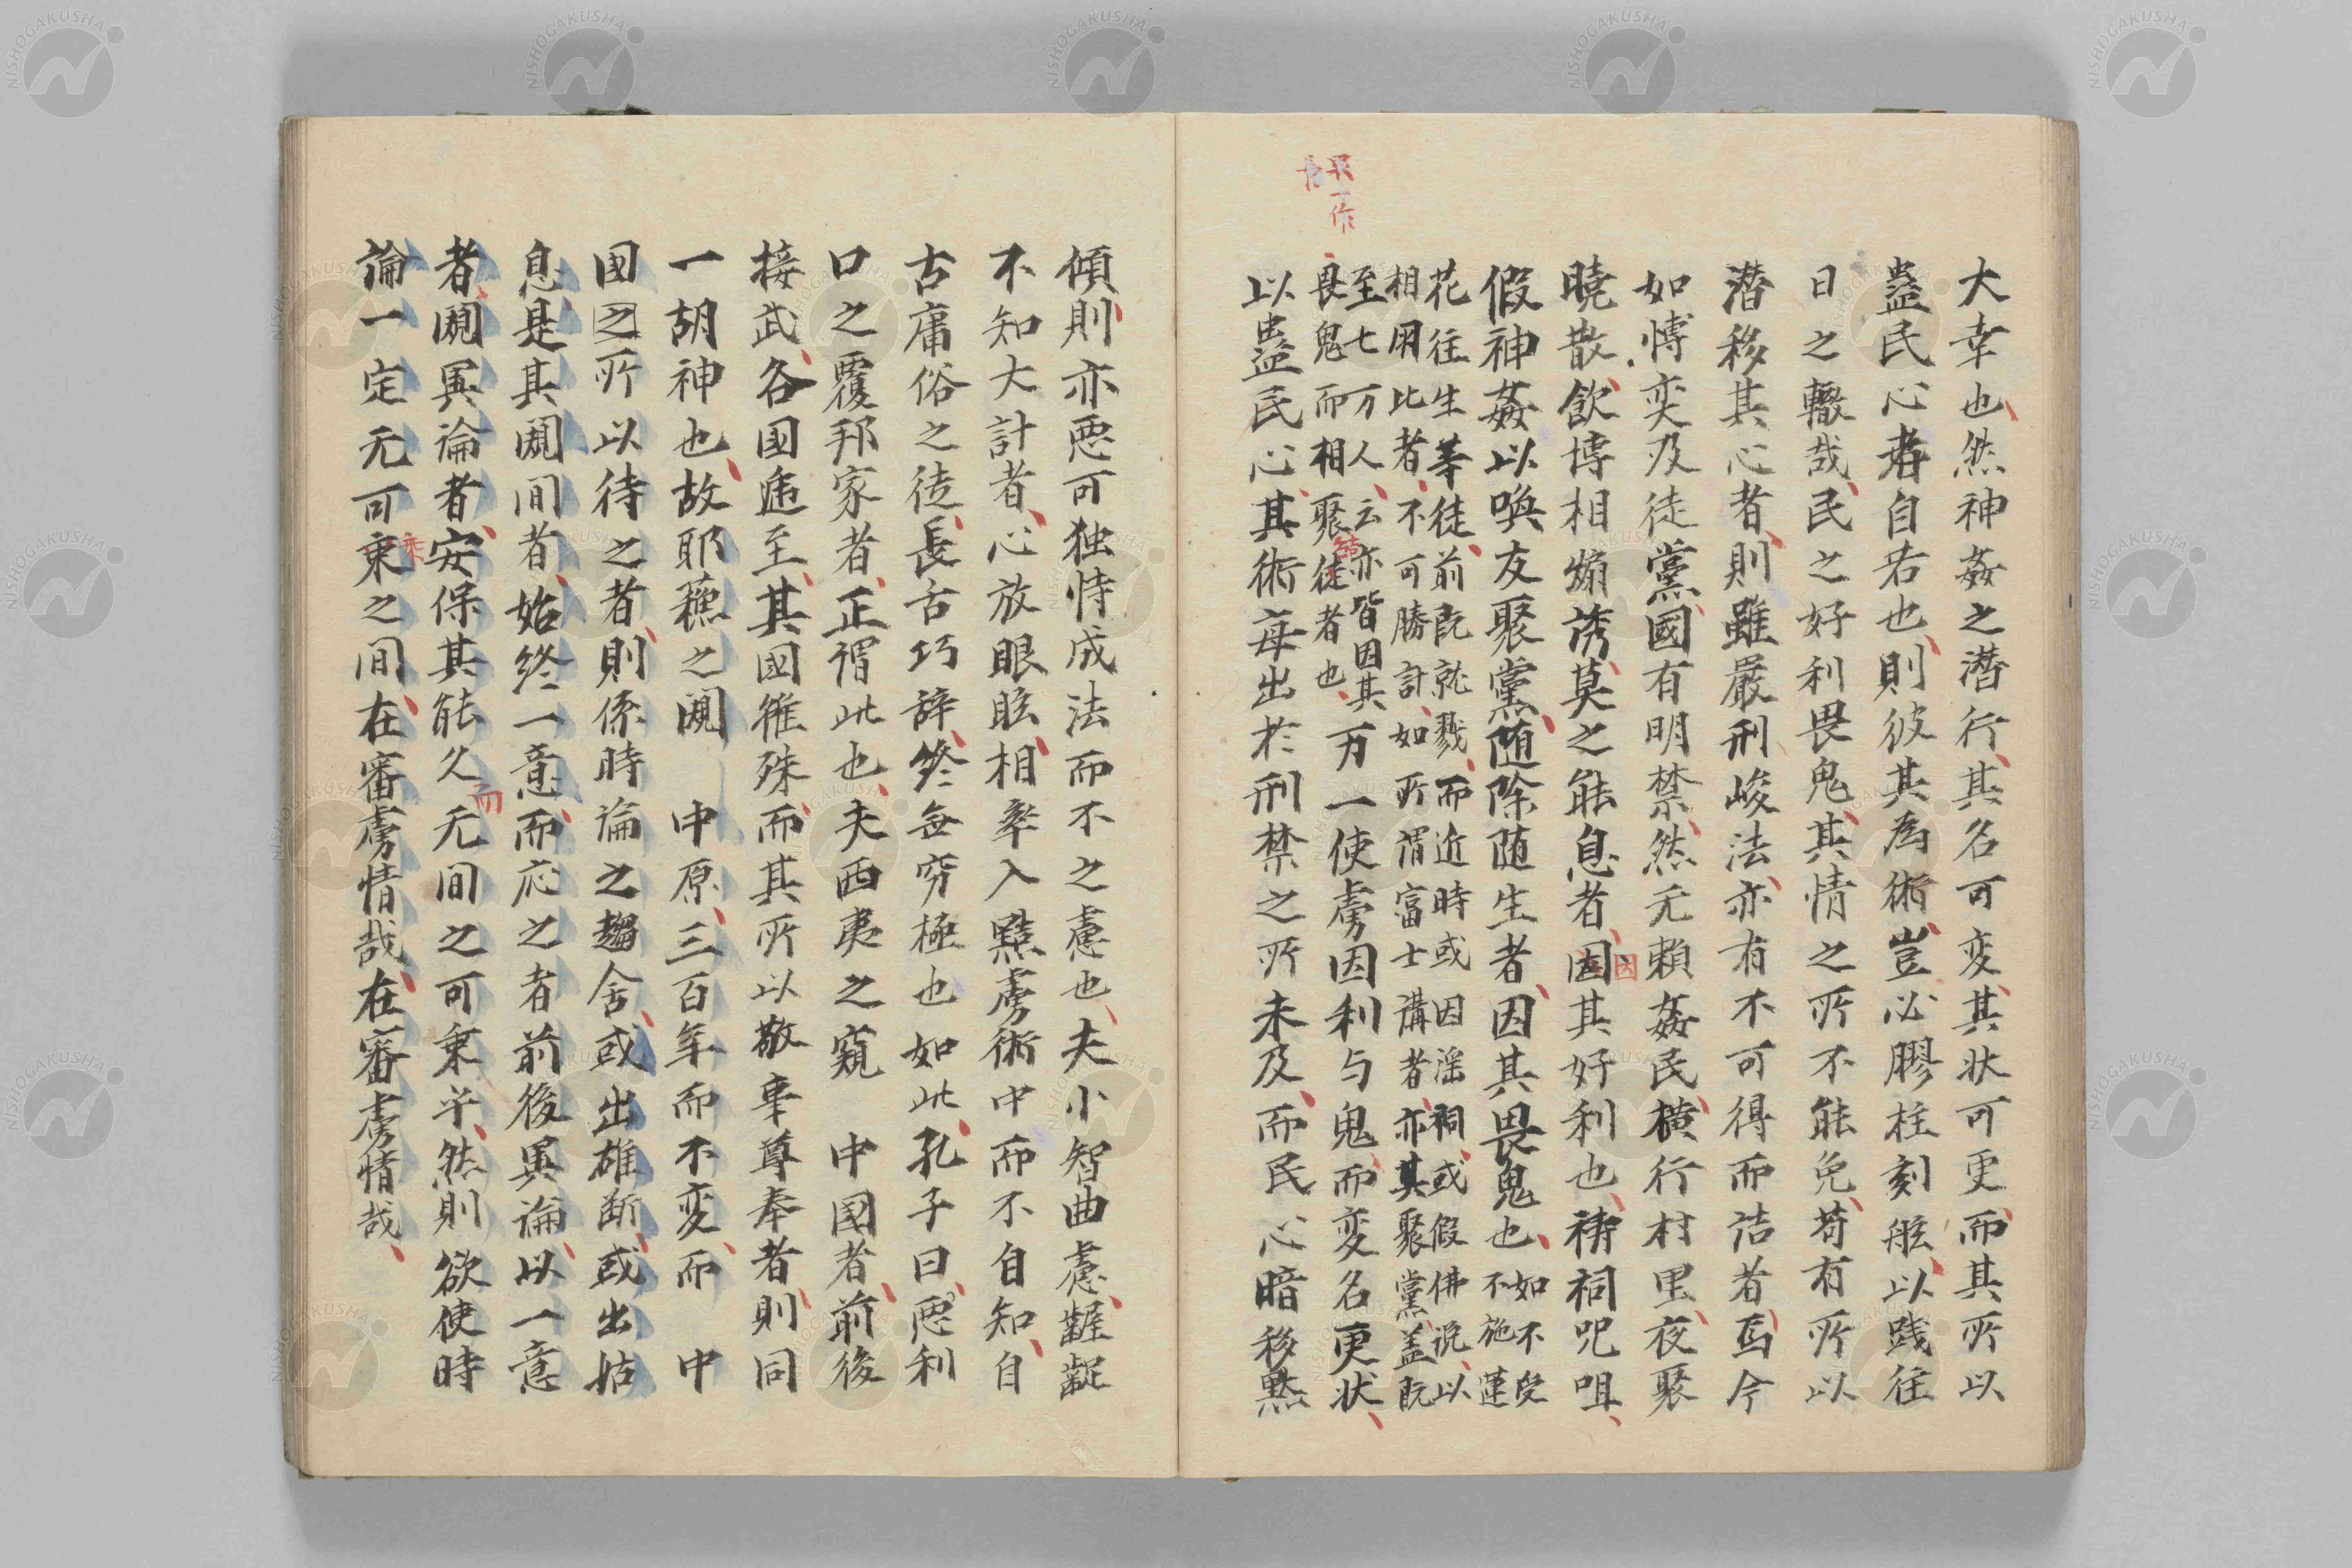 大幸也然神姦之潜行其名可変其状可更而其所以
蠱民心者自若也則彼其為術豈必膠柱刻舷以践往
日之轍哉民之好利畏鬼其情之所不能免苟有所以
潜移其心者則雖嚴刑峻法亦有不可得而詰者焉今
如博奕及徒黨國有明禁然无頼姦民横行村里夜聚
曉散飲博相煽誘莫之能息者因其好利也祷祠咒咀
因
假神姦以喚友聚黨随除随生者因其畏鬼也
如不受
不施蓮
花往生等徒前既就戮而近時或因淫祠或假佛説以
相用比者不可勝計如所謂富士講者亦其聚黨盖既
至七万人云亦皆因其
畏鬼而相聚徒者也
結
万一使虜因利与鬼而変名更状
果一作
以蠱民心其術毎出於刑禁之所未及而民心暗移黙
傾則亦悪可独恃成法而不之慮也夫小智曲慮齷齪
不知大計者心放眼眩相率入點虜術中而不自知自
古庸俗之徒長舌巧辞終無窮極也如此孔子曰悪利
口之覆邦家者正謂此也夫西夷之窺 中國者前後
接武各國逓至其國雖殊而其所以敬事尊奉者則同
一胡神也故耶蘓之闚 中原三百年而不変而 中
國之所以待之者則係時論之趨舍或出雄断或出姑
息是其闚間者始終一意而応之者前後異論以一意
者闚異論者安保其能久无間之可乗乎然則欲使時
而
論一定无可乗之間在審虜情哉在審虜情哉
乘
NISHOGAKUSHA